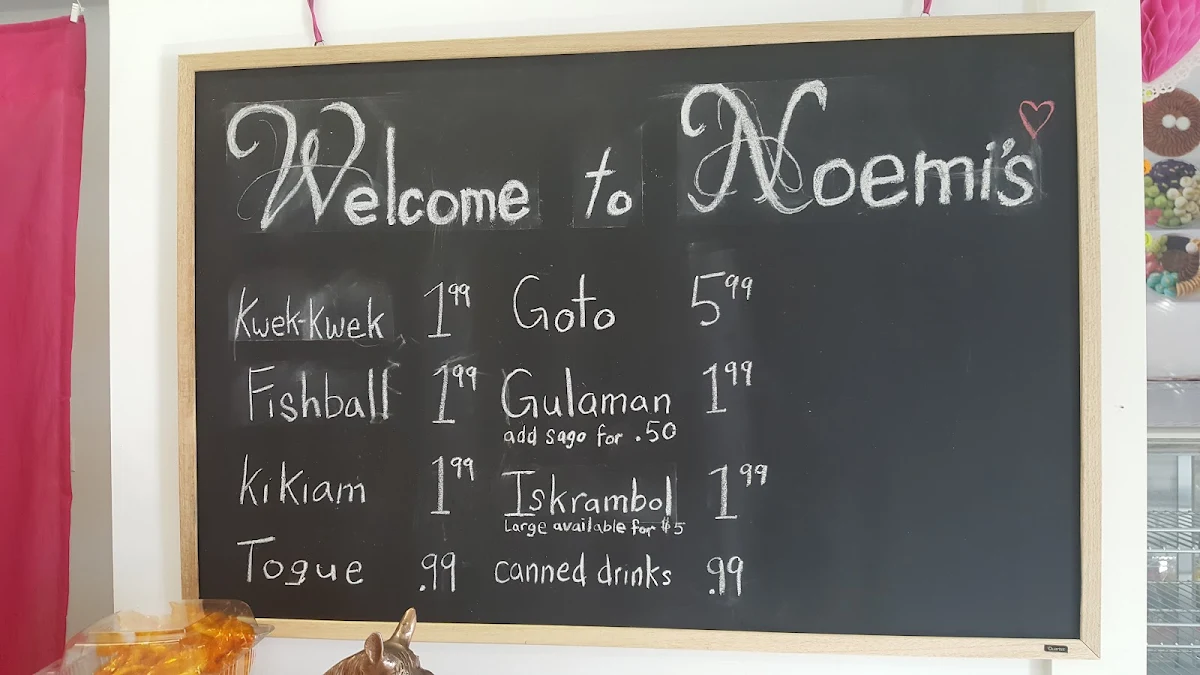 Welcome to Noemi's
Kwek-Kwek 1.99
Fishball 1.99
Kikiam 1.99
Togue .99
Goto 5.99
Gulaman 1.99
add sago for .50
Iskrambol 1.99
Large available for $5
canned drinks .99